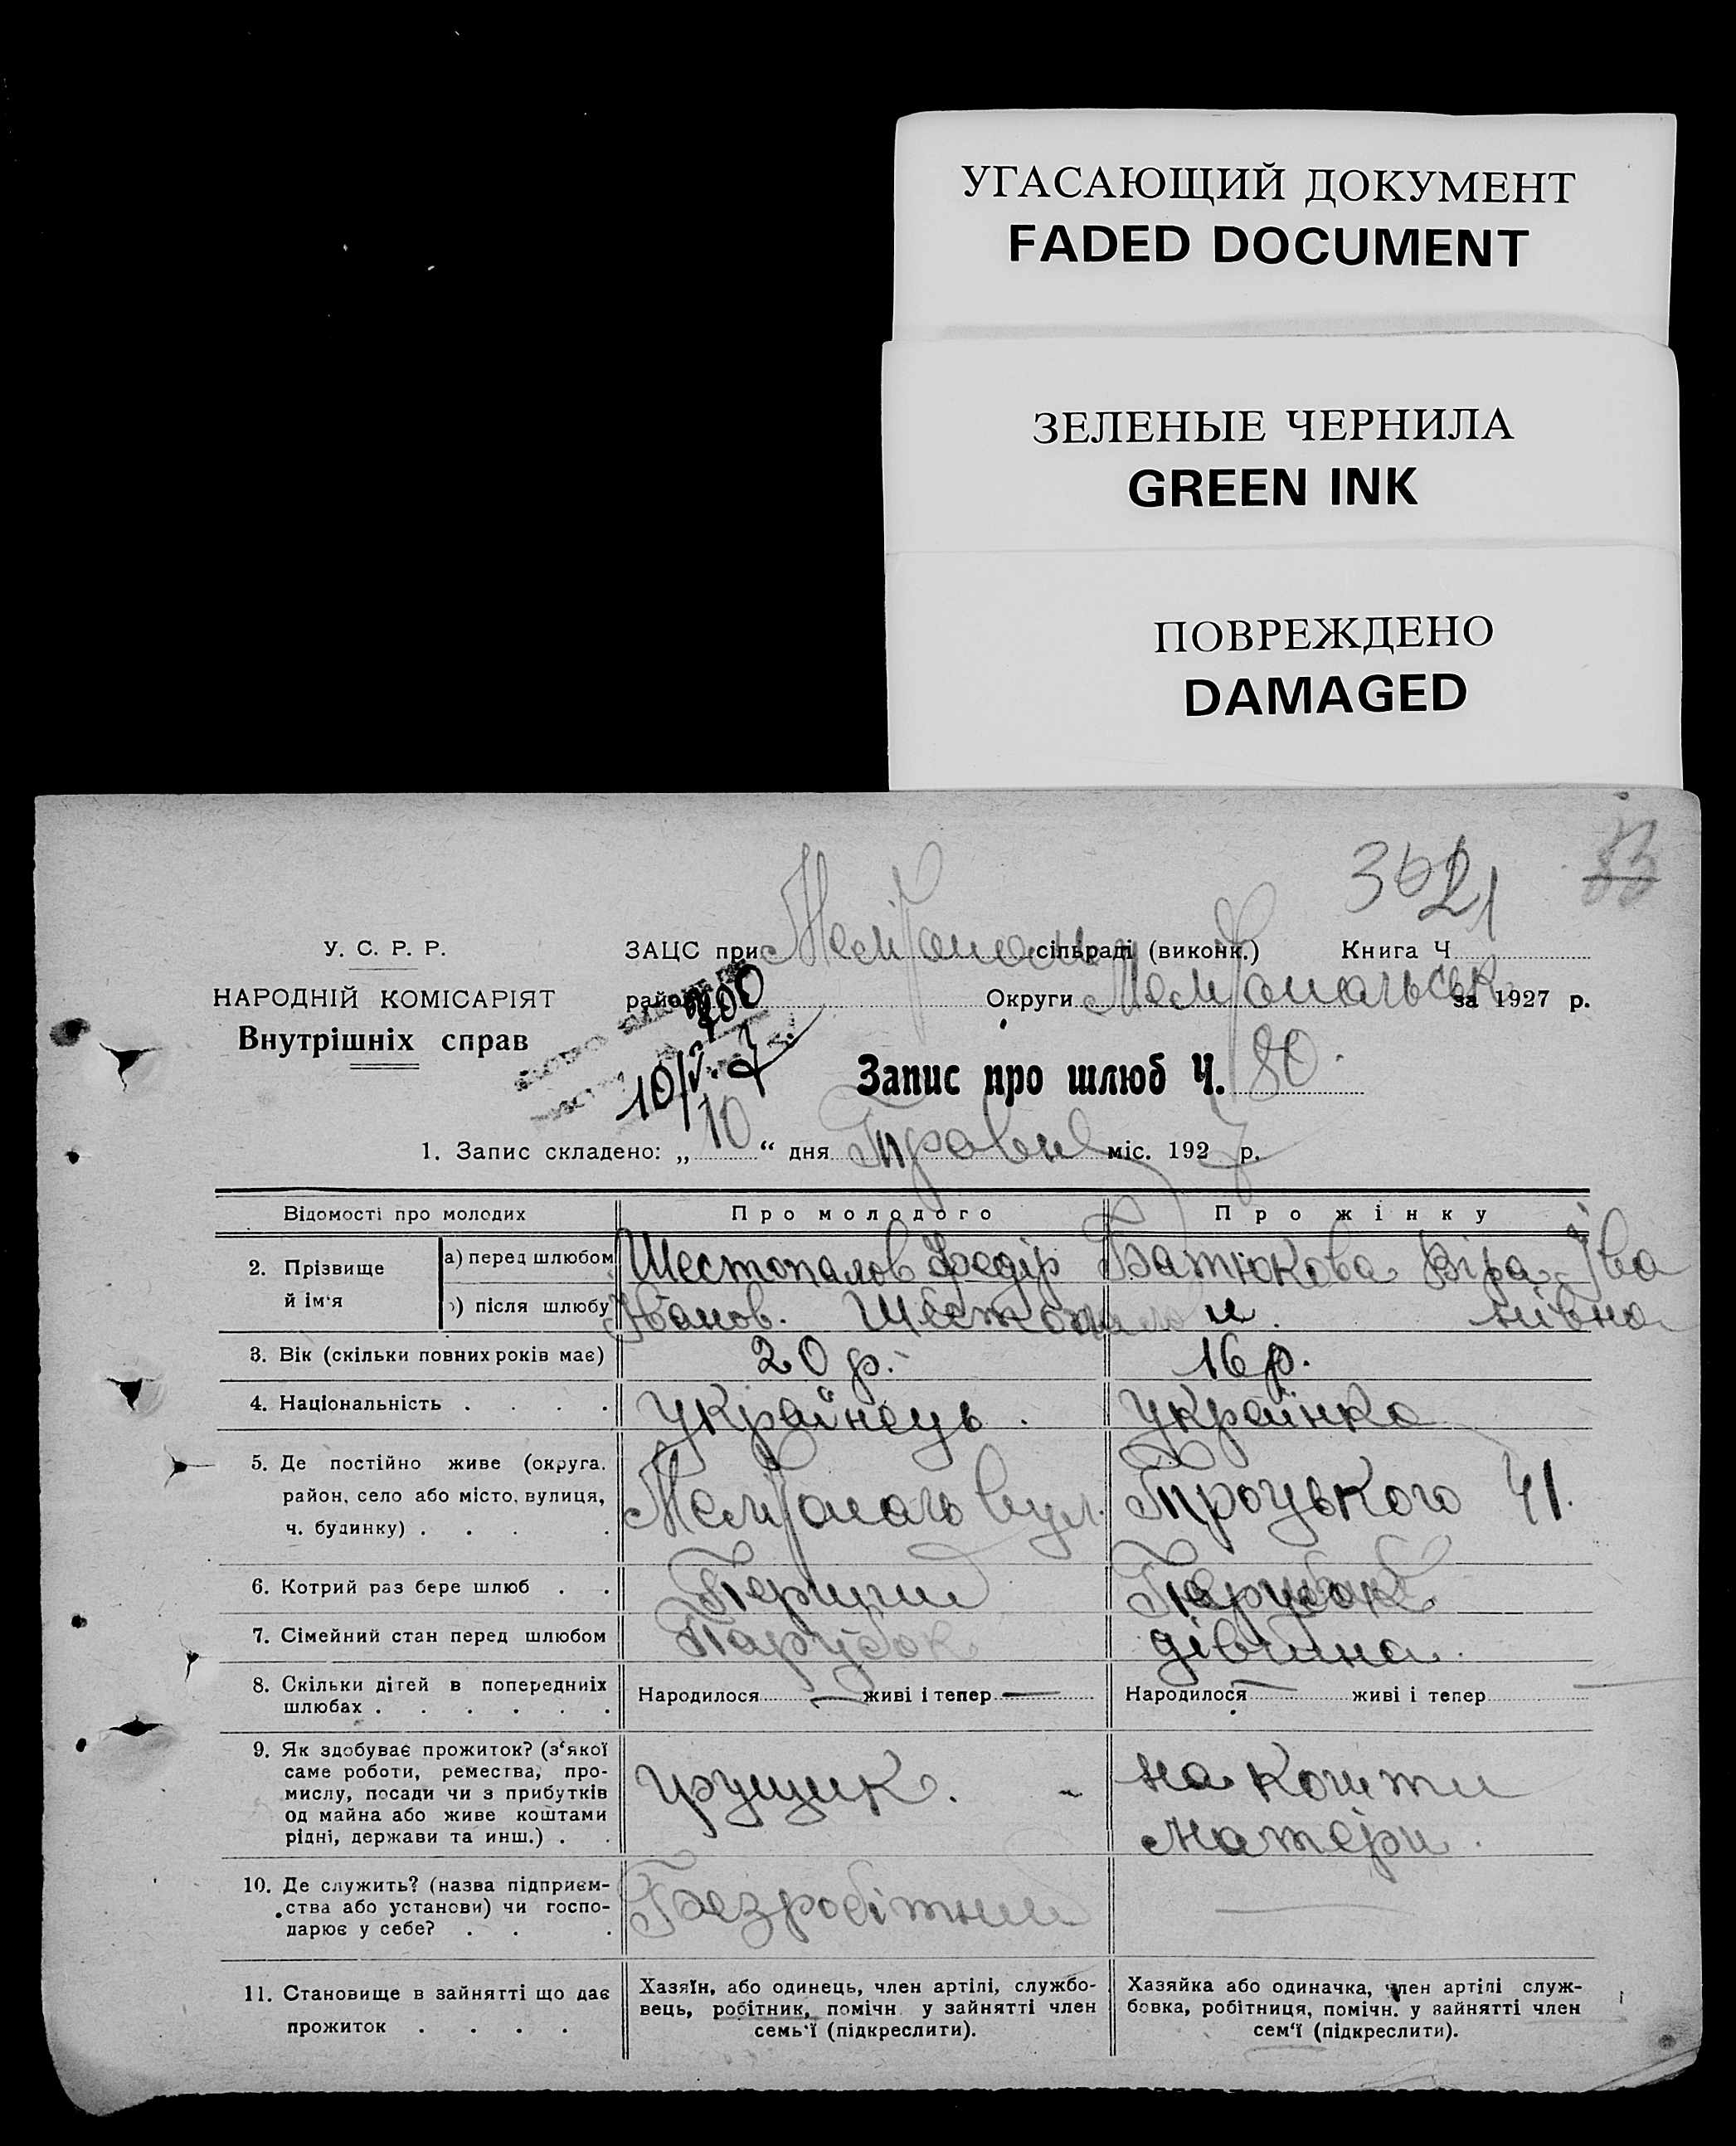 УГАСАЮЩИЙ ДОКУМЕНТ
FADED DOCUMENT
ЗЕЛЕНЫЕ ЧЕРНИЛА
GREEN INK
ПОВРЕЖДЕНО
DAMAGED
У. С. Р. Р.
НАРОДНІЙ КОМІСАРІЯТ
Внутрішніх справ
ЗАЦС при Мелітополь сільраді (виконк.) Книга Ч
район Округи Мелітопольськ за 1927 р.
10/V. 7.
Запис про шлюб Ч. 80.
1. Запис складено: „ 10 “ дня Травня міс. 1927 р.
Відомості про молодих Про молодого Про жінку
2. Прізвище й ім'я
а) перед шлюбом Шестопалов Федір Батюкова Віра Іва
) після шлюбу Іванов. Шестопалови. нівна
3. Вік (скільки повних років має) 20 р. 16 р.
4. Національність . . . . Українець. Українка
5. Де постійно живе (округа, район, село або місто, вулиця, ч. будинку) . . . Мелітополь вул. Троцького 41.
6. Котрий раз бере шлюб . . Перший
7. Сімейний стан перед шлюбом Парубок дівчина.
8. Скільки дітей в попередніх шлюбах . . . . . . Народилося — живі і тепер — Народилося — живі і тепер
9. Як здобуває прожиток? (з'якої
саме роботи, ремества, про-
мислу, посади чи з прибутків
од майна або живе коштами
рідні, держави та инш.) . .
грущик. на кошти
матери.
10. Де служить? (назва підприєм-
ства або установи) чи госпо-
дарює у себе? . . .
Безробітний —
11. Становище в зайнятті що дає
прожиток . . . .
Хазяїн, або одинець, член артілі, службо-
вець, робітник, помічн. у зайнятті член
семь'ї (підкреслити).
Хазяйка або одиначка, член артілі служ-
бовка, робітниця, помічн. у зайнятті член
сем'ї (підкреслити).